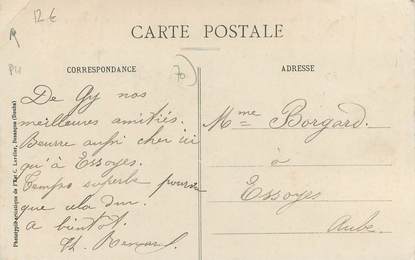 12 €
CARTE POSTALE
CORRESPONDANCE
ADRESSE
70
De Gy nos
meilleures amitiés.
Beurre aussi cher ici
qu'à Essoyes.
Temps superbe pourvu
que cela dure.
a bientôt.
Th.
Mme Borgard.
à
Essoyes
Aube
Phototypie artistique de l'Edit. C. Lardier, Besançon (Doubs)